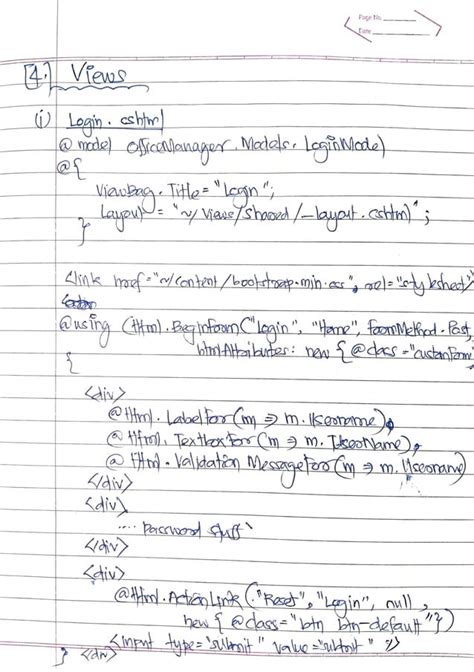 Page No.
Date
[4.] Views
(i) Login.cshtml
@model OfficeManager.Models.LoginModel
@{
ViewBag.Title = "Login";
Layout = "~/Views/Shared/_layout.cshtml";
}
<link href="~/content/bootstrap.min.css", rel="stylesheet">
@using (Html.BeginForm("Login", "Home", FormMethod.Post,
htmlAttributes: new { @class = "customForm
{
<div>
@Html.LabelFor(m => m.Username),
@Html.TextboxFor(m => m.UserName),
@Html.Validation MessageFor(m => m.Username)
</div>
<div>
.... Password stuff
</div>
<div>
@Html.ActionLink("Reset", "Login", null,
new { @class="btn btn-default"})
<input type="submit" value="submit" />
} <div>